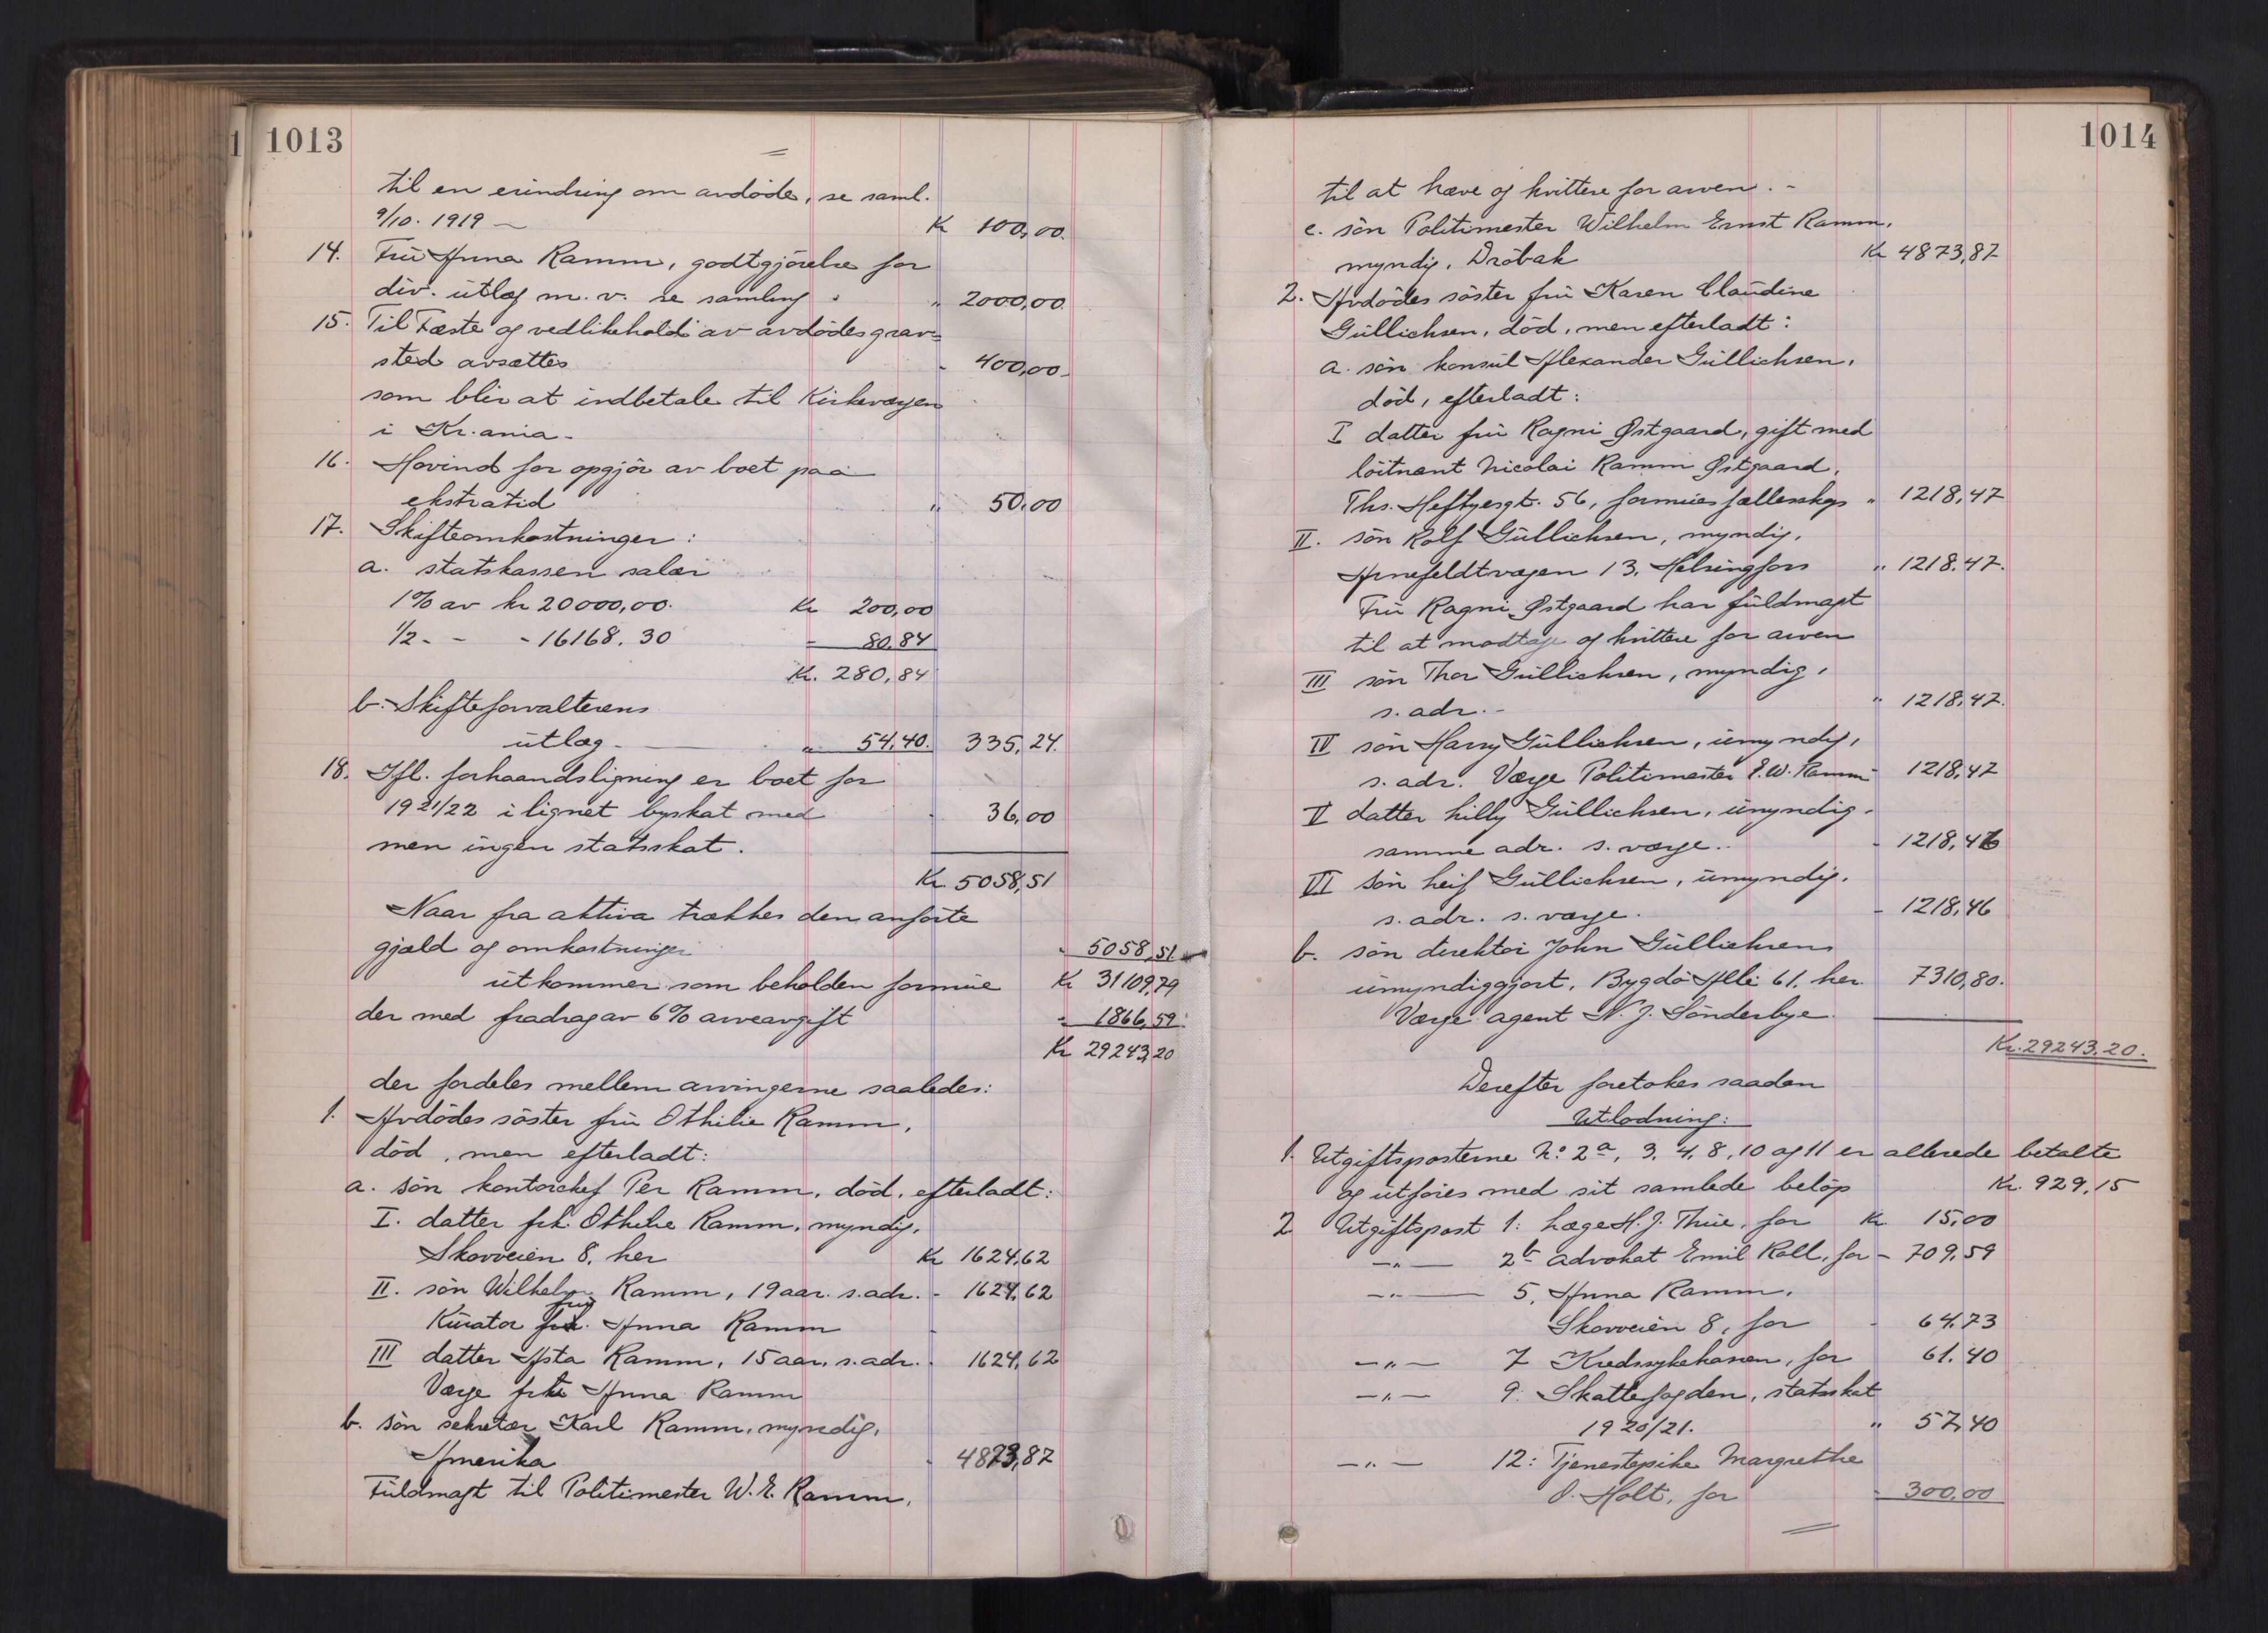 1013
til en erindring om avdøde, se saml.
9/10. 1919 — Kr 100,00.
14. Frü Anna Ramm, godtgjörelse for
div. ütlæg m. v. se samling " 2000,00.
15. Til Fæste og vedlikehold av avdödes grav=
sted avsættes - 400,00-
som blir at indbetale til Kirkevergen
i Kr.ania-
16. Hovind for opgjör av boet paa
ekstratid " 50,00
17. Skifteomkostninger:
a. statskassen salær
1% av kr 20000,00. Kr 200,00
1/2 - - - 16168.30 - 80,84
Kr. 280,84
b. Skifteforvalterens
ütlæg- " 54,40. 335,24.
18. Ifl. forhaandsligning er boet for
1921/22 ilignet byskat med - 36,00
men ingen statsskat.
Kr. 5058,51
Naar fra aktiva trækkes den anförte
gjæld og omkostninger - 5058,51
ütkommer som beholden formüe Kr 31109,79
der med fradrag av 6% arveavgift - 1866,59
Kr 29243,20
der fordeles mellem arvingerne saaledes:
1. Avdödes söster frü Othilie Ramm,
död, men efterladt:
a. sön kontorchef Per Ramm, död, efterladt:
I. datter frk. Othilie Ramm, myndig,
Skovveien 8, her Kr 1624,62
II. sön Wilhelm Ramm, 19 aar. s. adr. - 1624,62
Kürator frü Anna Ramm
III datter Asta Ramm, 15 aar, s. adr. - 1624,62
Værge frü Anna Ramm
b. sön sekretær Karl Ramm, myndig,
Amerika - 4873,87
Füldmagt til Politimester W. E. Ramm,
1014
til at hæve og kvittere for arven. -
c. sön Politimester Wilhelm Ernst Ramm,
myndig, Dröbak Kr 4873,87
2. Avdödes söster frü Karen Claüdine
Güllichsen, död, men efterladt:
a. sön konsül Alexander Güllichsen,
död, efterladt:
I datter frü Ragni Østgaard, gift med
löitnant Nicolai Ramm Østgaard,
Ths. Heftyesgt. 56, formüesfællesskap " 1218,47
II. sön Rolf Güllichsen, myndig,
Arnefeldtvægen 13, Helsingfors " 1218.47.
Frü Ragni Østgaard har füldmagt
til at modtage og kvittere for arven
III sön Thor Güllichsen, myndig,
s. adr. - " 1218,47.
IV sön Harry Güllichsen, ümyndig,
s. adr. Værge Politimester E. W. Ramm - 1218,47
V datter Lilly Güllichsen, ümyndig.
samme adr. s. værge. - 1218,46
VI sön Leif Güllichsen, ümyndig.
s. adr. s. værge. - 1218,46
b. sön direktör John Güllichsen
ümyndiggjort, Bygdö Alle 61. her. 7310,80.
Værge agent N. J. Sönderbye.
Kr. 29243.20.
Derefter foretokes saadan
Utlodning:
1. Utgiftsposterne No 2a, 3. 4. 8, 10 og 11 er allerede betalte
og ütföres med sit samlede belöp Kr. 929,15
2 Utgiftspost 1: Læge H. J. Thüe, for Kr 15,00
—"— 2b advokat Emil Roll, for - 709,59
—"— 5. Anna Ramm,
Skovveien 8, for - 64.73
—"— 7 Kredssykekassen, for 61.40
—"— 9. Skattefogden, statsskat
1920/21. " 57,40
—"— 12: Tjenestepike Margrethe
O. Holt, for - 300,00